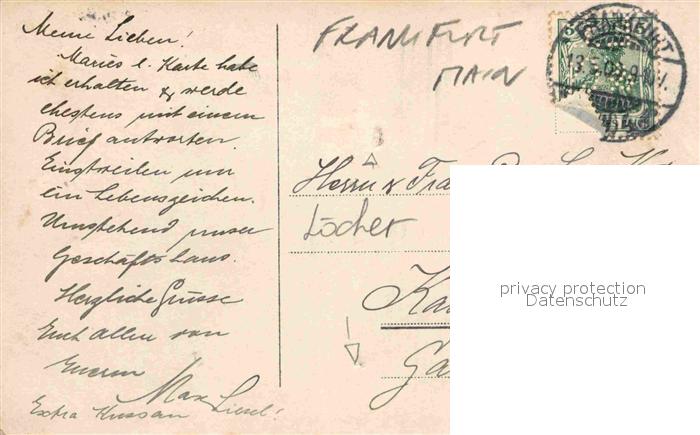 Meine Lieben!
Maries l. Karte habe
ich erhalten & werde
ehestens mit einem
Brief antworten.
Einstweilen nur
ein Lebenszeichen.
Umstehend unser
Geschäftshaus.
Herzliche Grüsse
Euch allen von
Euerm
Max
Extra Kuss an Liesel!
FRANKFURT
MAIN
FRANKFURT
13.5.
Herrn & Fra
Löcher
Ka
Ga
privacy protection
Datenschutz